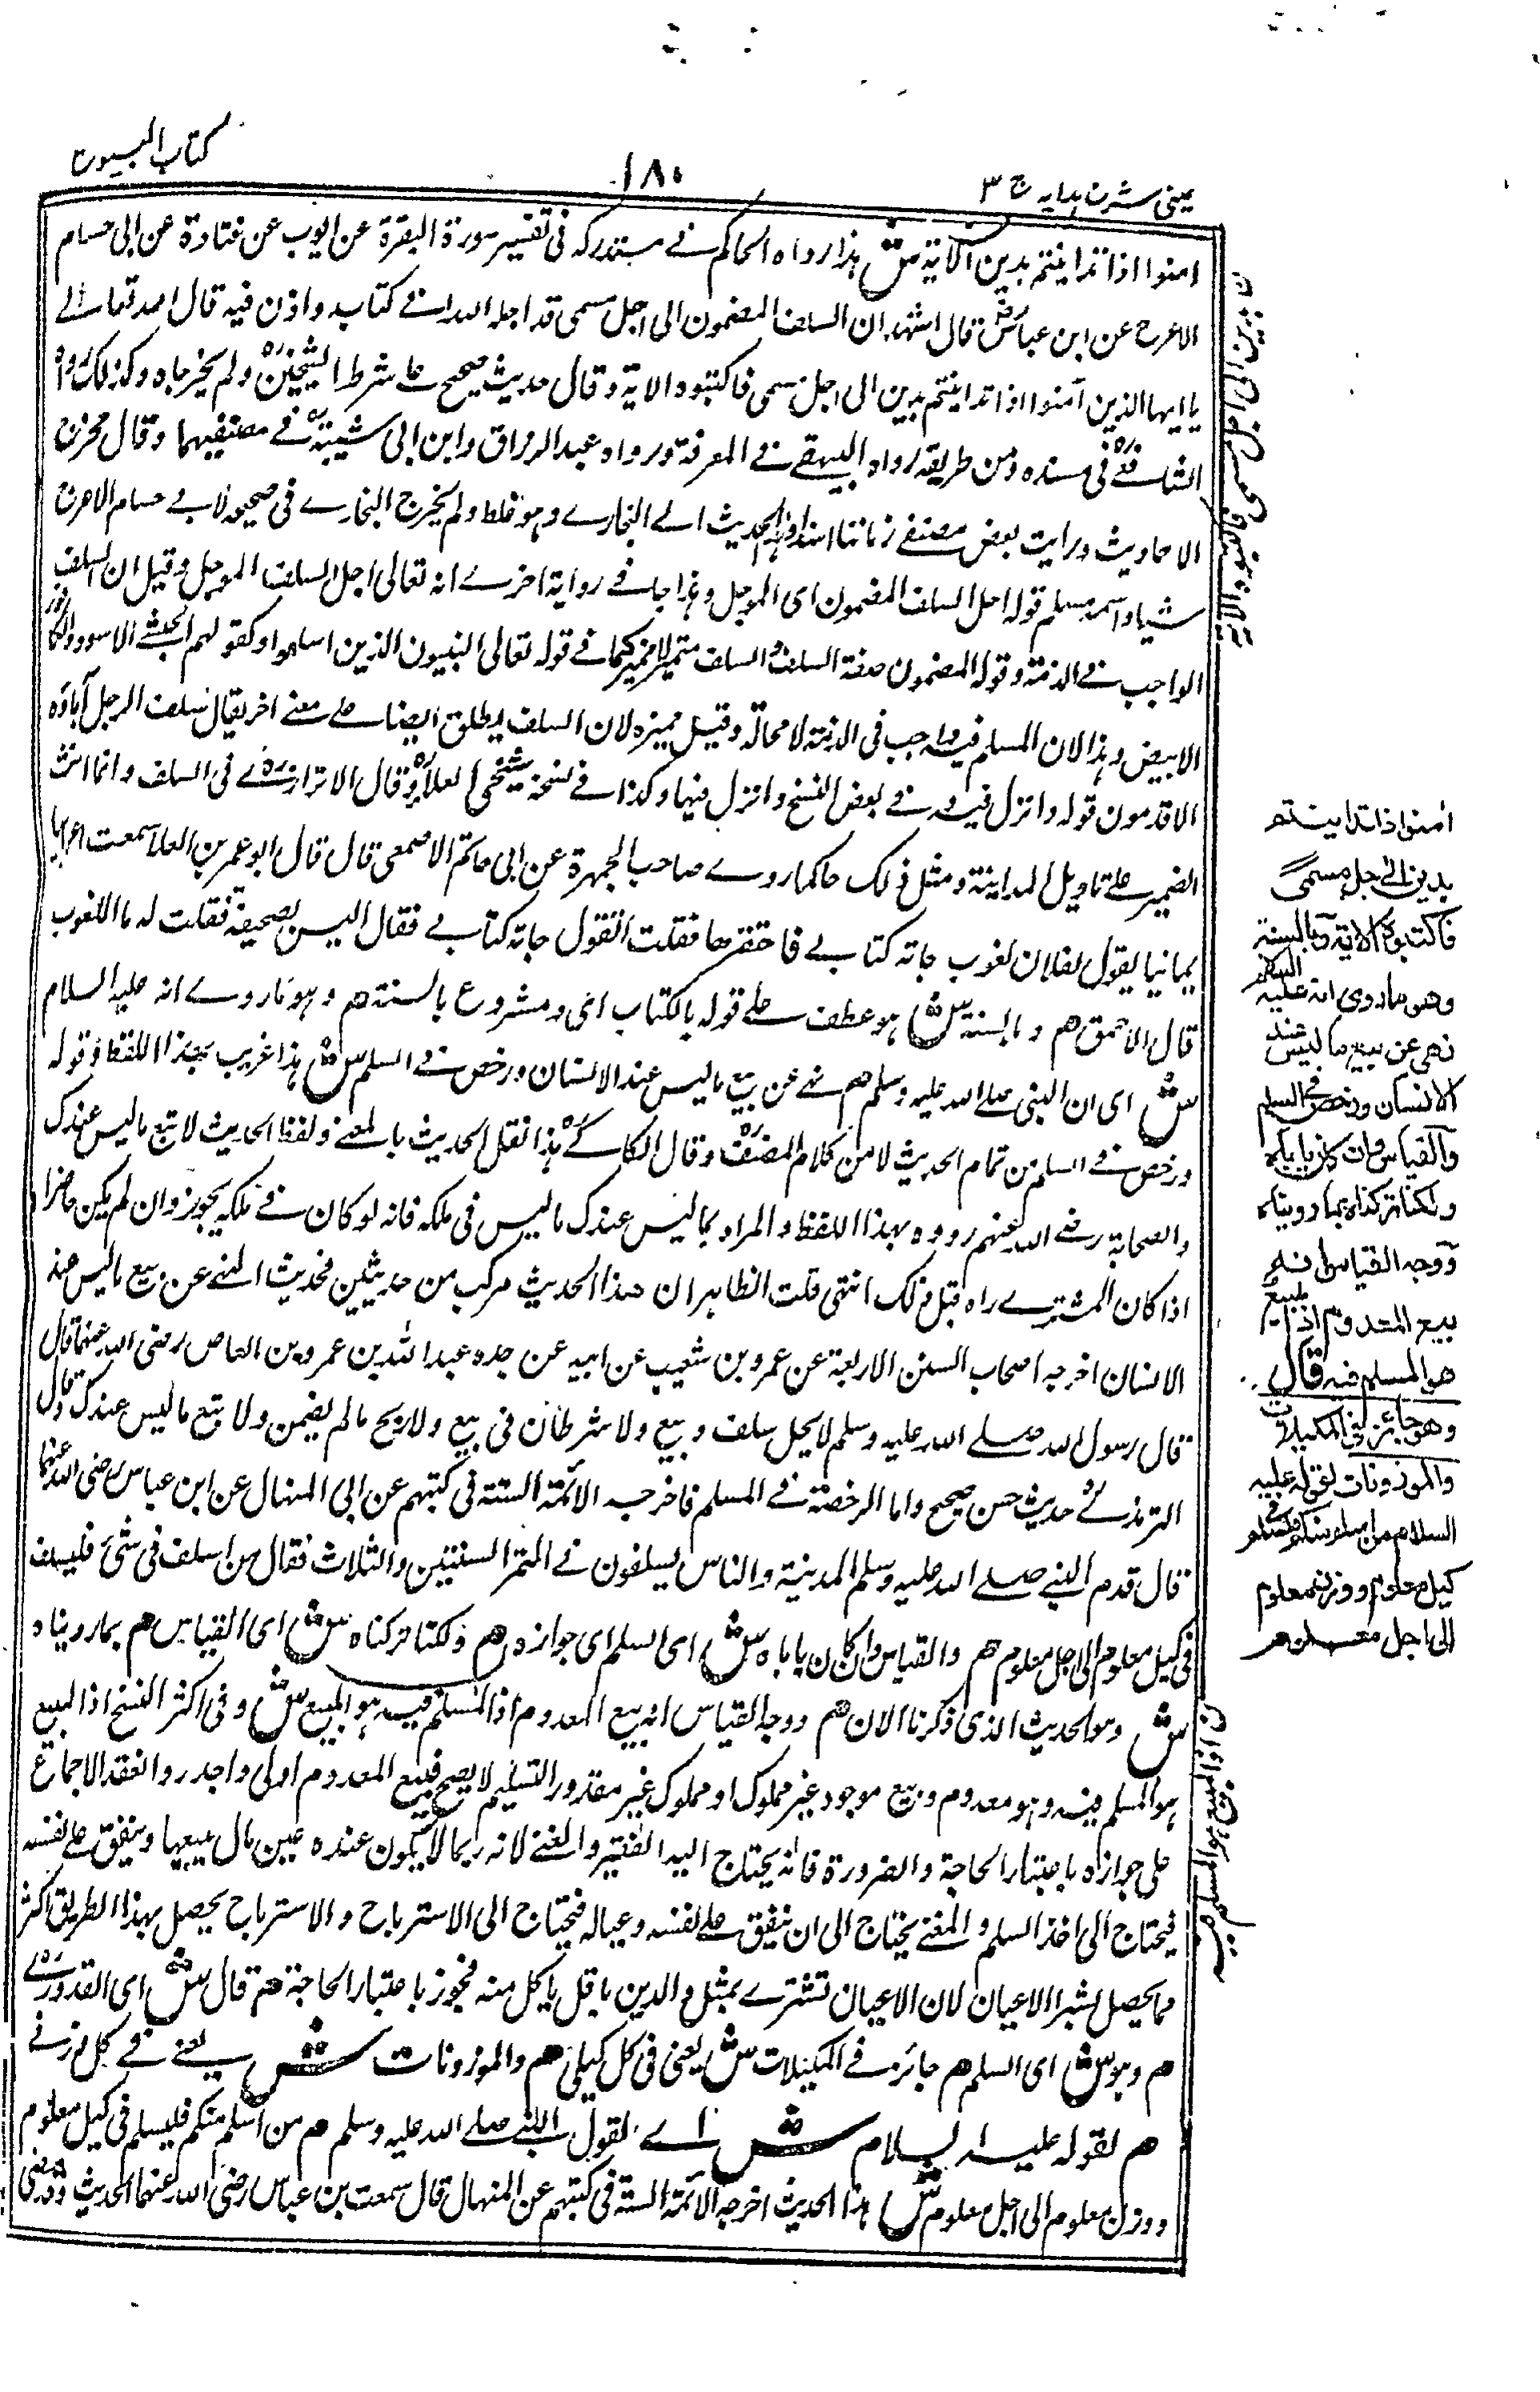 كتاب البيوع
١٨٠
عينى شرح هدايه ج ٣
امنوا اذا تداينتم بدين الآية ش هذا رواه الحاكم فى مستدركه فى تفسير سورة البقرة عن ايوب عن قتادة عن ابى حسام
الاعرج عن ابن عباس رض قال اشهد ان السلف المضمون الى اجل مسمى قد اجله الله فى كتابه واذن فيه قال الله تعالى
يا ايها الذين آمنوا اذا تداينتم بدين الى اجل مسمى فاكتبوه الاية وقال حديث صحيح على شرط الشيخين ولم يخرجاه وكذلك رواه
الشافعى فى مسنده ومن طريقه رواه البيهقى فى المعرفة ورواه عبد الرزاق وابن ابى شيبة فى مصنفيهما وقال مخرج
الاحاديث ورايت بعض مصنفى زماننا اسند هذا الحديث الى البخارى وهو غلط ولم يخرج البخارى فى صحيحه لابى حسام الاعرج
شيئا واسمه مسلم قوله احل السلف المضمون اى الموجل وهذا جاء فى رواية اخرى انه تعالى اجل السلف الموجل وقيل ان السلف
الواجب فى الذمة وقوله المضمون صفة السلف والسلف متميز لا مميز كما فى قوله تعالى النبيون الذين اسلموا وكقولهم الحبشى الاسود والكافور
الابيض وهذا لان المسلم فيه واجب فى الذمة لا محالة وقيل مميزه لان السلف يطلق ايضا على معنى اخر يقال سلف الرجل آباؤه
الاقدمون قوله وانزل فيه فى بعض النسخ وانزل فيها وكذا فى نسخة شيخى العلاء وقال الاترازى فى السلف وانما انث
الضمير على تاويل المداينة ومثل ذلك ما حكما روى صاحب الجمهرة عن ابى حاتم الاصمعى قال قال ابو عمر بن العلا سمعت اعرابيا
يمانيا يقول لفلان لغوب جاته كتابى فاحتقرها فقلت اتقول جاته كتابى فقال اليس بصحيفة فقلت له ما اللغوب
قال الاحمق هم وبالسنة ش هو عطف على قوله بالكتاب اى ومشروع بالسنة هم وهو ما روى انه عليه السلام
ش اى ان النبى صلى الله عليه وسلم هم نهى عن بيع ما ليس عند الانسان ورخص فى السلم ش هذا غريب بهذا اللفظ وقوله
ورخص فى السلم من تمام الحديث لا من كلام المصنف وقال الكاكى هذا نقل الحديث بالمعنى ولفظ الحديث لا تبع ما ليس عندك
والصحابة رضى الله عنهم رووه بهذا اللفظ والمراد بما ليس عندك ما ليس فى ملكه فانه لو كان فى ملكه يجوز وان لم يكن حاضرا
اذا كان المشترى راه قبل ذلك انتهى قلت الظاهر ان هذا الحديث مركب من حديثين فحديث النهى عن بيع ما ليس عند
الانسان اخرجه اصحاب السنن الاربعة عن عمرو بن شعيب عن ابيه عن جده عبد الله بن عمرو بن العاص رضى الله عنهما قال
قال رسول الله صلى الله عليه وسلم لا يحل سلف وبيع ولا شرطان فى بيع ولا ربح ما لم يضمن ولا تبع ما ليس عندك قال
الترمذى حديث حسن صحيح واما الرخصة فى السلم فاخرجه الائمة الستة فى كتبهم عن ابى المنهال عن ابن عباس رضى الله عنهما
قال قدم النبى صلى الله عليه وسلم المدينة والناس يسلفون فى التمر السنتين والثلاث فقال من اسلف فى شئ فليسلف
فى كيل معلوم الى اجل معلوم هم والقياس وان كان ياباه ش اى السلم اى جوازه هم ولكنا تركناه ش اى القياس هم بما رويناه
ش وهو الحديث الذى ذكرنا الان هم ووجه القياس انه بيع المعدوم اذ المسلم فيه هو المبيع ش وفى اكثر النسخ اذ المبيع
هو المسلم فيه وهو معدوم وبيع موجود غير مملوك او مملوك غير مقدور التسليم لا يصح فبيع المعدوم اولى واجدر وانعقد الاجماع
على جوازه باعتبار الحاجة والضرورة فانه يحتاج اليه الفقير والغنى لانه ربما لا يكون عنده عين مال يبيعها وينفق على نفسه
فيحتاج الى اخذ السلم والمغنى يحتاج الى ان ينفق على نفسه وعياله فيحتاج الى الاسترباح والاسترباح يحصل بهذا الطريق اكثر
مما يحصل بشراء الاعيان لان الاعيان تشترى بمثل والدين باقل ياكل منه فيجوز باعتبار الحاجة هم قال ش اى القدورى
هم وهو ش اى السلم هم جائز فى المكيلات ش يعنى فى كل كيلى هم والموزونات ش يعنى فى كل وزنى
هم لقوله عليه السلام ش اى لقول النبى صلى الله عليه وسلم هم من اسلم منكم فليسلم فى كيل معلوم
ووزن معلوم الى اجل معلوم ش هذا الحديث اخرجه الائمة الستة فى كتبهم عن المنهال قال سمعت بن عباس رضى الله عنهما الحديث وقد مضى
امنوا اذا تداينتم
بدين الى اجل مسمى
فاكتبوه الاية وبالسنة
وهو ما روى انه عليه السلام
نهى عن بيع ما ليس عند
الانسان ورخص فى السلم
والقياس وان كان ياباه
ولكنا تركناه بما رويناه
ووجه القياس انه
بيع المعدوم اذ المبيع
هو المسلم فيه قال
وهو جائز فى المكيلات
والموزونات لقوله عليه
السلام من اسلم منكم فليسلم فى
كيل معلوم ووزن معلوم
الى اجل معلوم